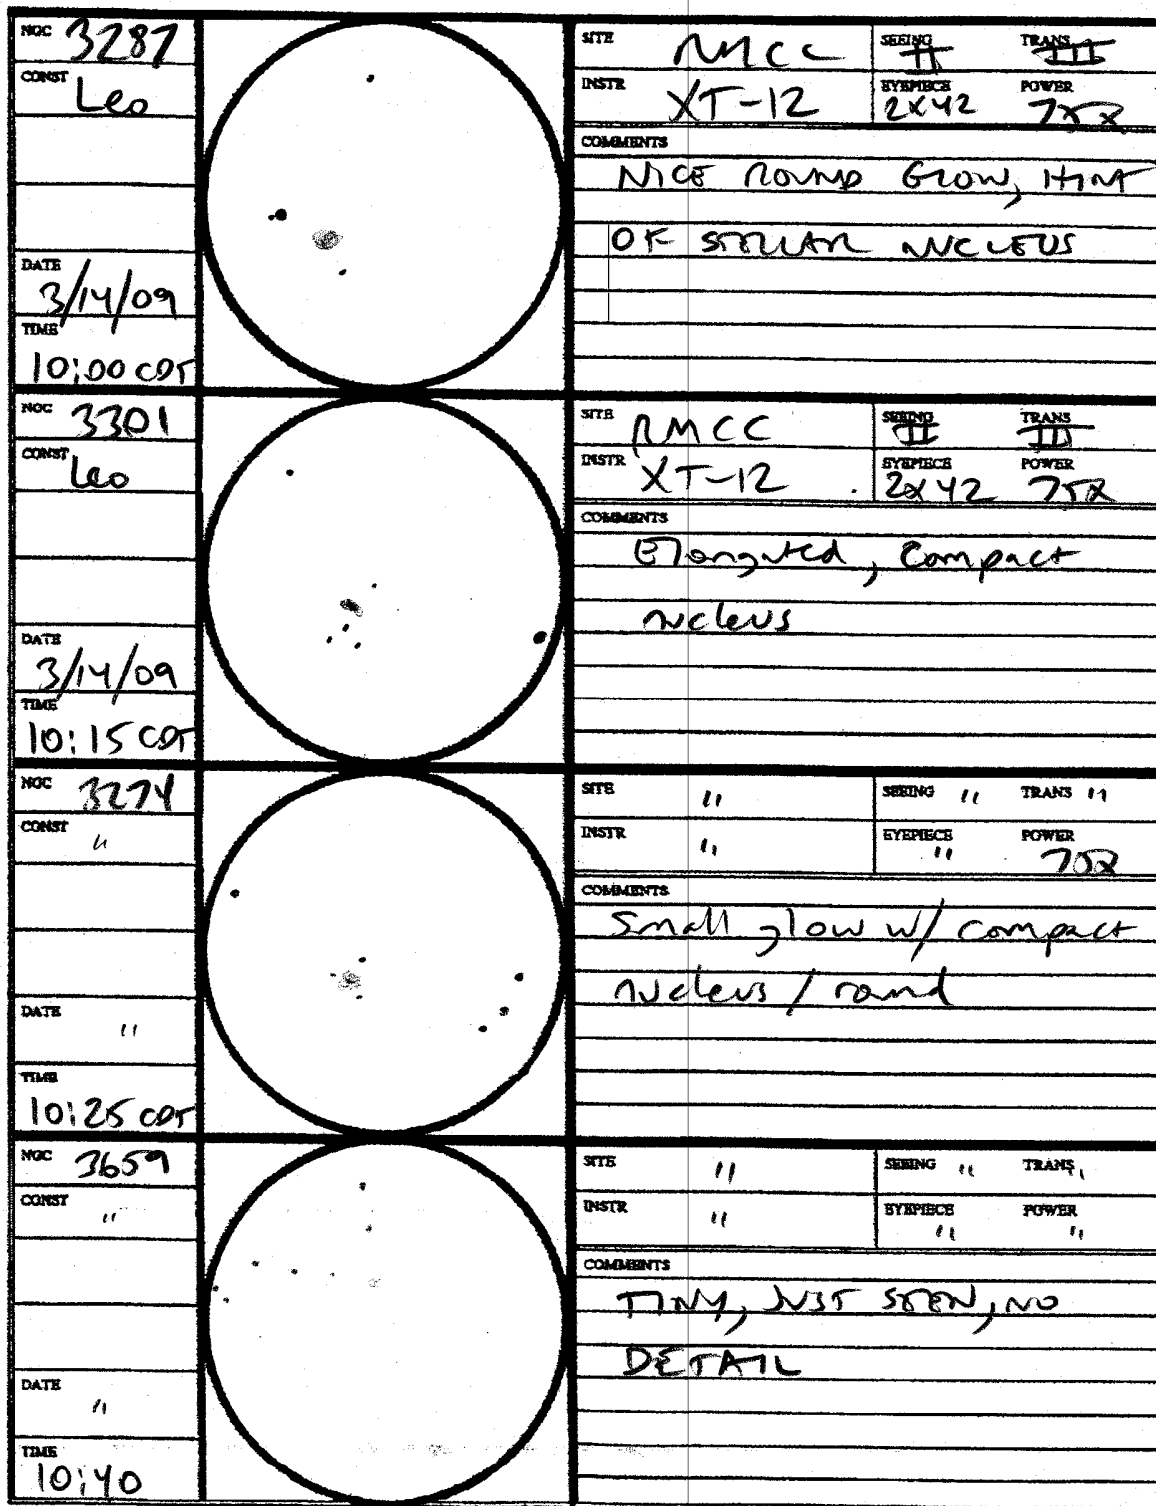 NGC 3287
CONST Leo
DATE 3/14/09
TIME 10:00 CDT
SITE RMCC SEEING II TRANS III
INSTR XT-12 EYEPIECE 2X42 POWER 75X
COMMENTS
NICE ROUND GLOW, HINT
OF STELLAR NUCLEUS
NGC 3301
CONST Leo
DATE 3/14/09
TIME 10:15 CDT
SITE RMCC SEEING II TRANS III
INSTR XT-12 EYEPIECE 2X42 POWER 75X
COMMENTS
Elongated, Compact
nucleus
NGC 3274
CONST "
DATE "
TIME 10:25 CDT
SITE " SEEING " TRANS "
INSTR " EYEPIECE " POWER 70X
COMMENTS
Small glow w/ compact
nucleus / round
NGC 3659
CONST "
DATE "
TIME 10:40
SITE " SEEING " TRANS "
INSTR " EYEPIECE " POWER "
COMMENTS
TINY, JUST SEEN, NO
DETAIL